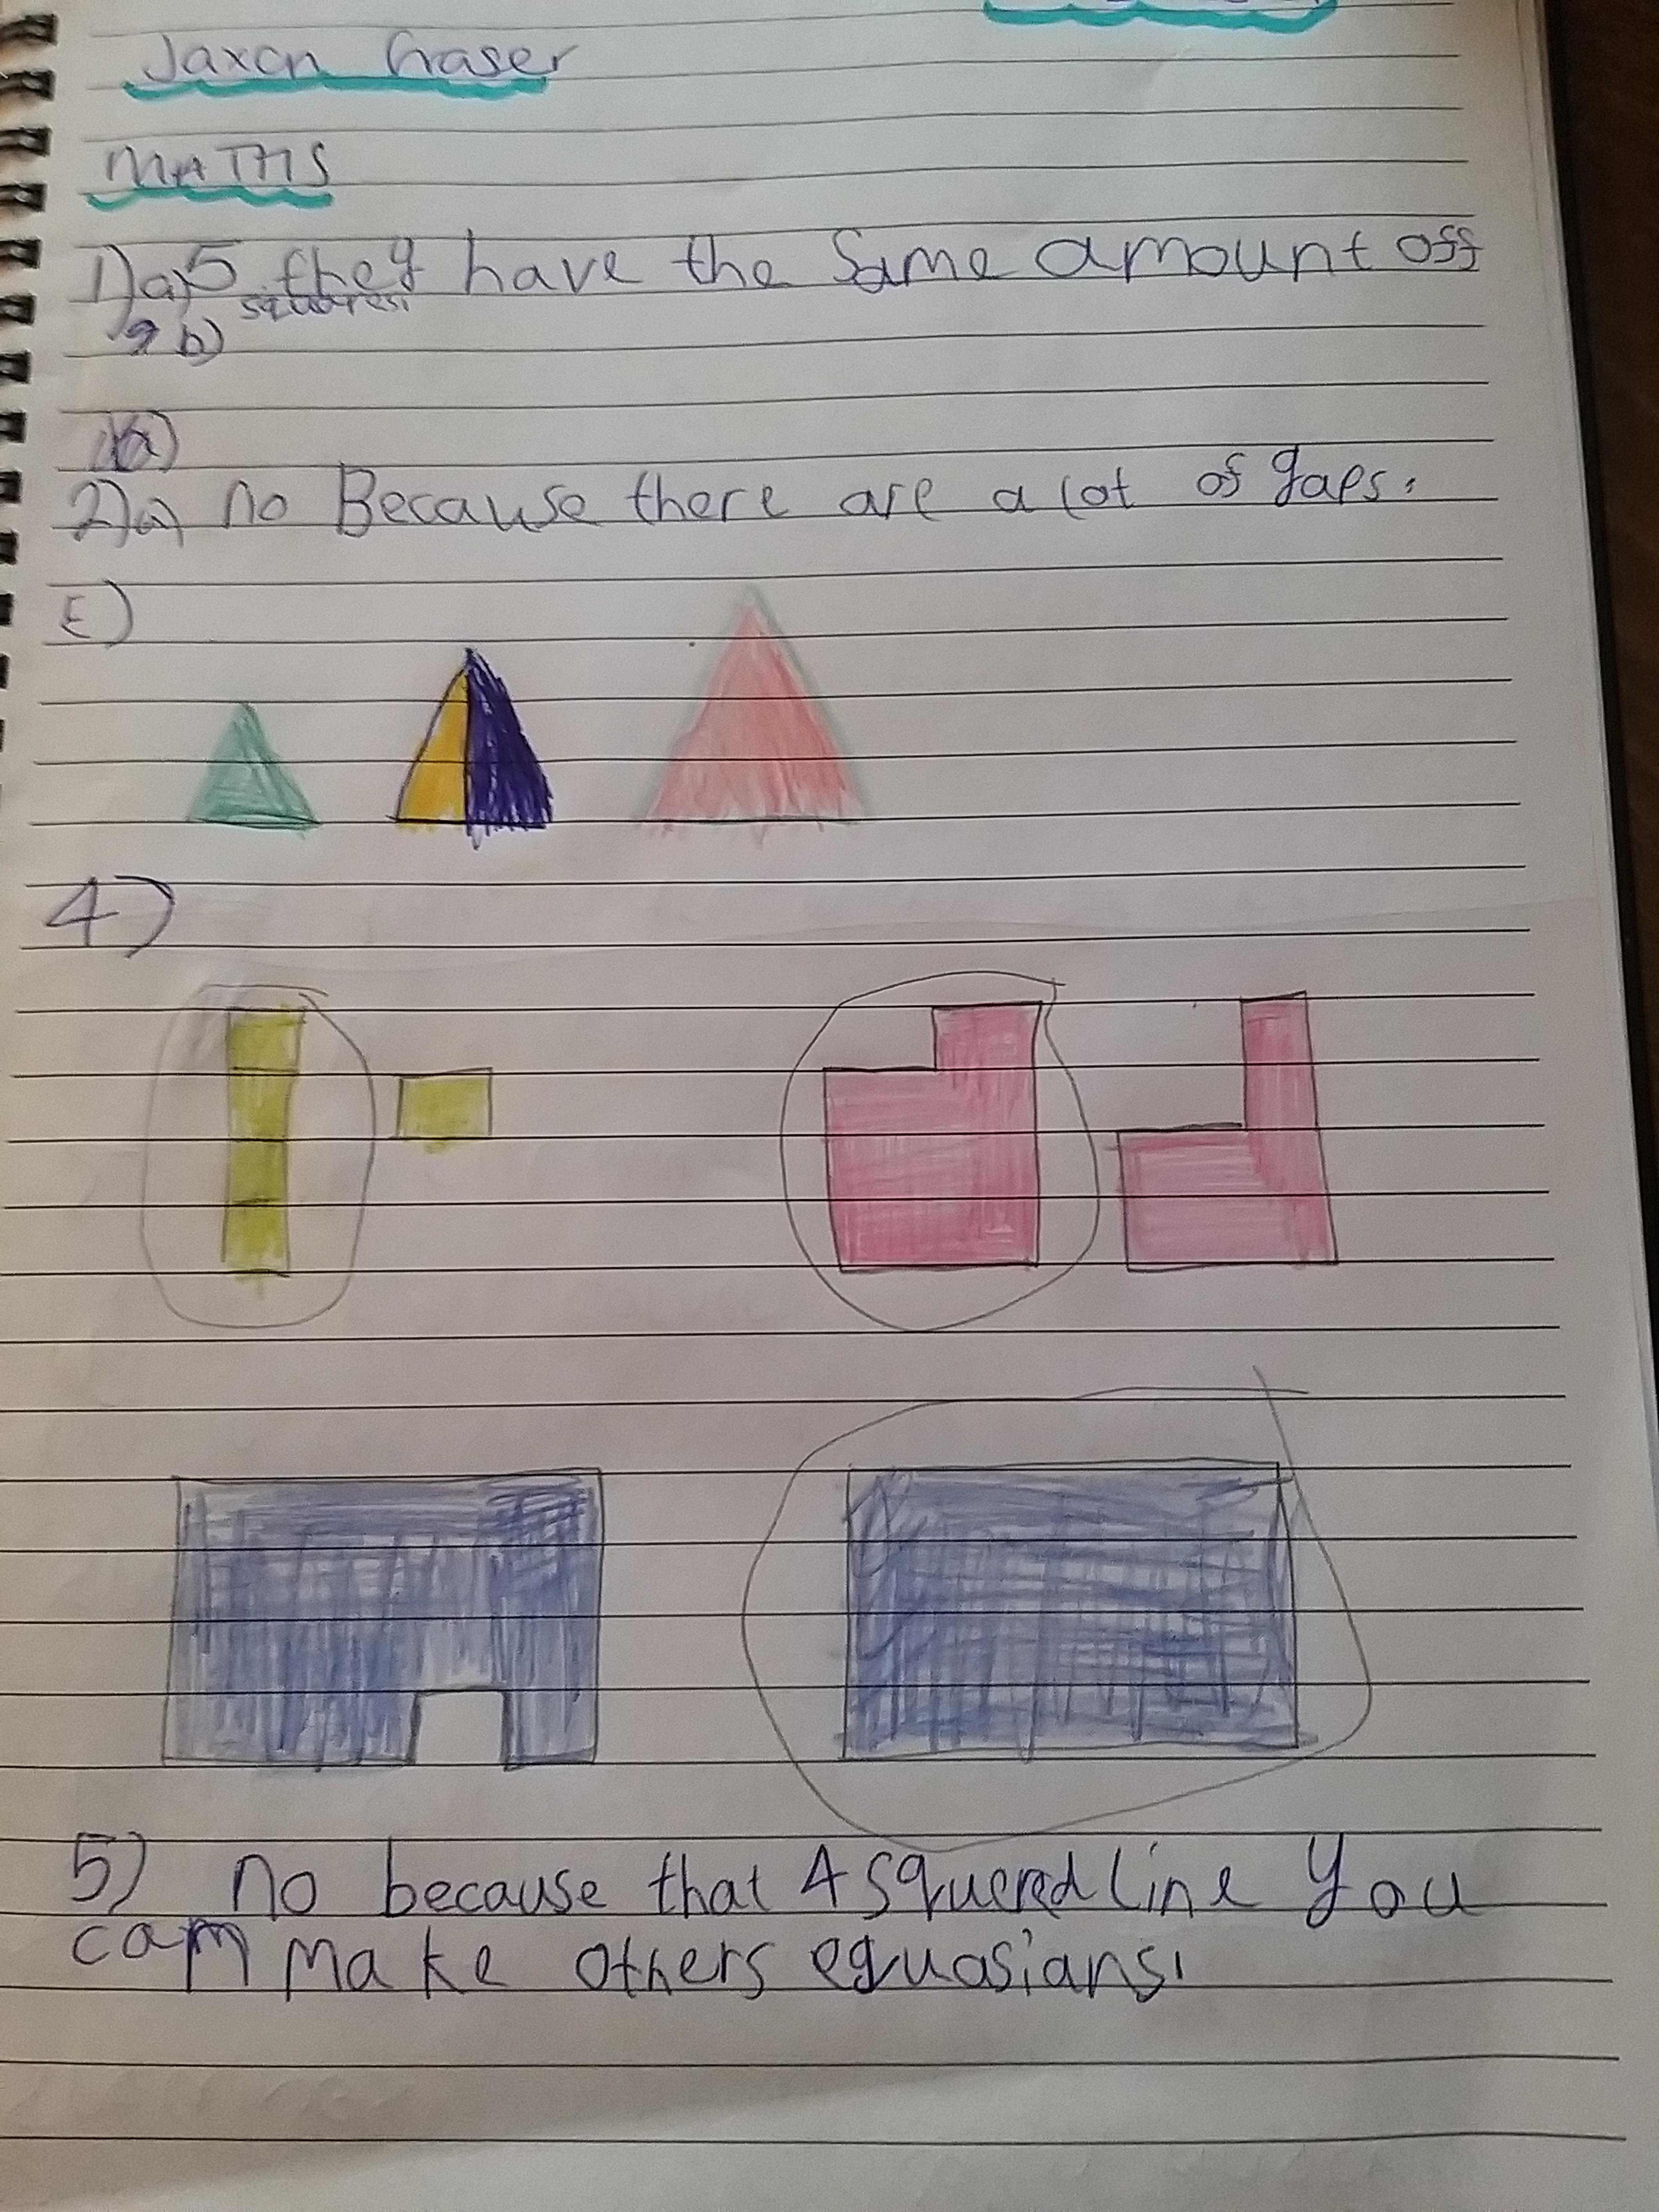 Jaxon Fraser
MATHS
1)a)5 they have the same amount off
squares.
b)
2)a) no Because there are a lot of gaps.
3)
4)
5) no because that 4 squered line you
can make others equasians.